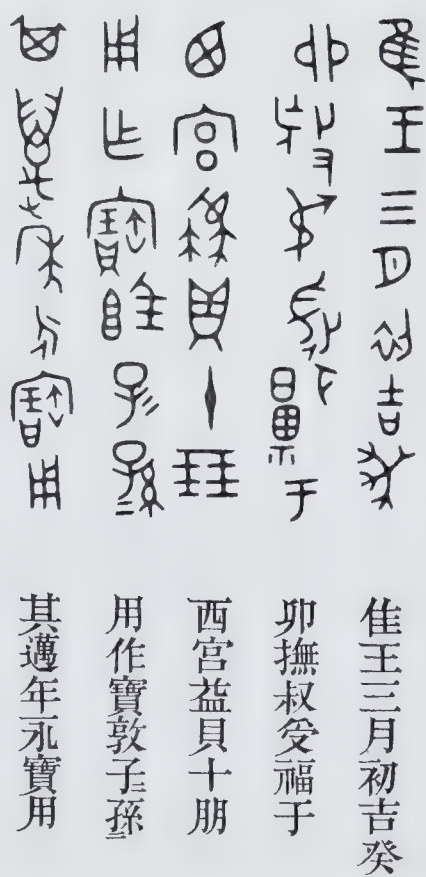 隹王三月初吉癸
卯撫叔受福于
西宮益貝十朋
用作寶敦子〻孫〻
其邁年永寶用